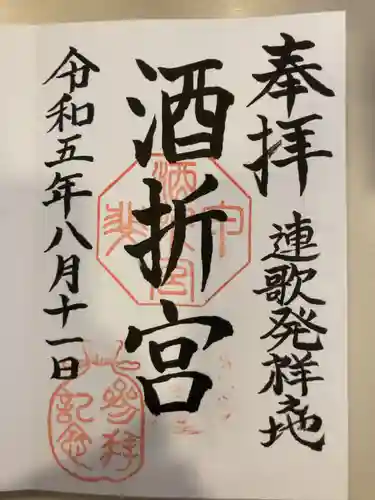 奉拝
連歌発祥地
酒折宮
令和五年八月十一日
参拝
記念